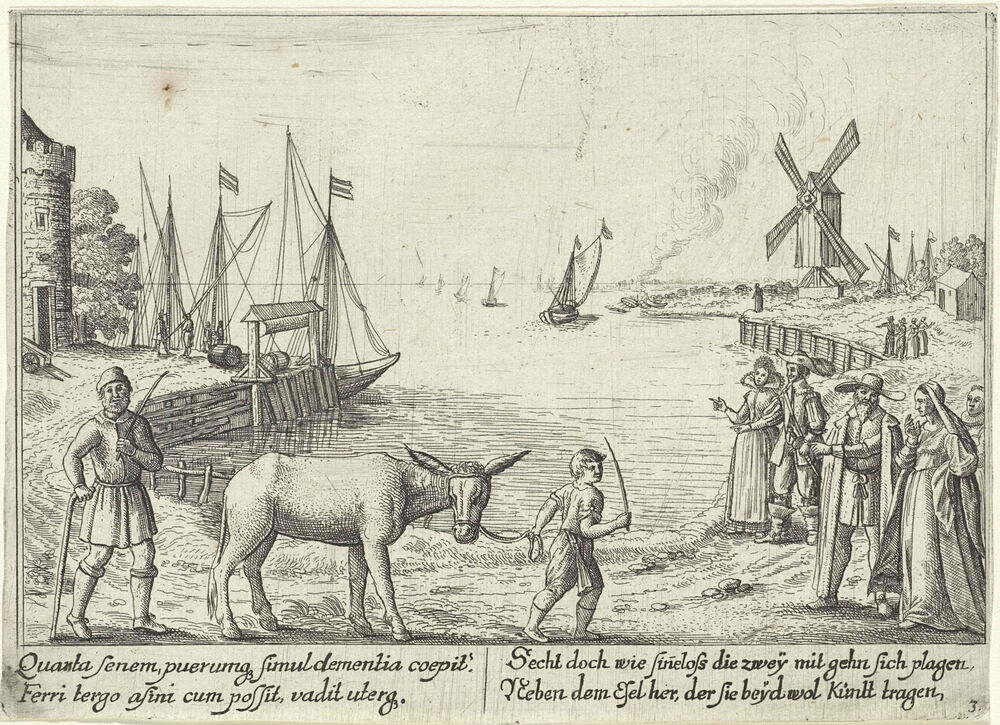 Quanta senem, puerumqȝ simul clementia coepit:
Ferri tergo asini cum possit, vadit uterqȝ.
Secht doch wie sin̄eloſs die zweÿ mit gehn sich plagen,
Neben dem Esel her, der sie beÿd wol Kündt tragen,
3.